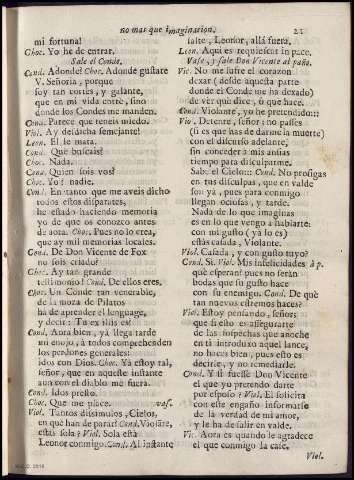 no mas que imaginacion. 21
mi fortuna!
Choc. Yo he de entrar.
Sale el Conde.
Cond. Adonde? Choc. Adonde gustare
V. Señoria, porque
soy tan cortès, y galante,
que en mi vida entrè, sino
donde los Condes me manden.
Cond. Parece que teneis miedo.
Viol. Ay desdicha semejante!
Leon. El le mata.
Cond. Què buscais?
Choc. Nada.
Cond. Quien sois vos?
Choc. Yo? nadie.
Cond. En tanto que me aveis dicho
todos estos disparates,
he estado haciendo memoria
yo de que os conozco antes
de aora. Choc. Pues no lo crea,
que ay mil memorias locales.
Cond. De Don Vicente de Fox
no sois criado?
Choc. Ay tan grande
testimonio! Cond. De ellos eres.
Choc. Un Conde tan venerable,
de la moza de Pilatos
ha de aprender el lenguage,
y decir: Tu ex illis es?
Cond. Aora bien, yà llega tarde
mi enojo, à todos comprehenden
los perdones generales:
idos con Dios. Choc. Yà estoy tal,
señor, que en aqueste instante
aun con el diablo me fuera.
Cond. Idos presto.
Choc. Que me place. vase.
Viol. Tantos dissimulos, Cielos,
en què han de parar? Cond. Violante,
estàs sola? Viol. Sola està
Leonor conmigo. Cond. Al instante
salte, Leonor, allà fuera.
Leon. Aqui es requiescat in pace.
Vase, y sale Don Vicente al paño.
Vic. No me sufre el corazon
dexar (desde aquesta parte
donde el Conde me ha dexado)
de vèr què dice, ò què hace.
Cond. Violante, yo he pretendido:::
Vic. Detente, señor: no passes
(si es que has de darme la muerte)
con el discurso adelante,
sin conceder à mis ansias
tiempo para disculparme.
Sabe el Cielo::: Cond. No prosigas
en tus disculpas, que en valde
son yà, pues para conmigo
llegan ociosas, y tarde.
Nada de lo que imaginas
es en lo que vengo à hablarte:
con mi gusto (ya lo es)
estàs casada, Violante.
Viol. Casada, y con gusto tuyo?
Cond. Sì. Viol. Mis infelicidades à p.
què esperan? pues no seràn
bodas que su gusto hace
con su enemigo. Cond. De què
tan nuevos estremos haces?
Viol. Estoy pensando, señor,
que si esto es assegurarte
de las sospechas que anoche
en tì introduxo aquel lance,
no haces bien, pues esto es
decirle, y no remediarle.
Cond. Y si fuesse Don Vicente
el que yo pretendo darte
por esposo? Viol. El solicita
con este engaño informarse
de la verdad de mi amor,
y le ha de salir en valde.
Vic. Aora es quando le agradece
el que conmigo la case.
Viol.